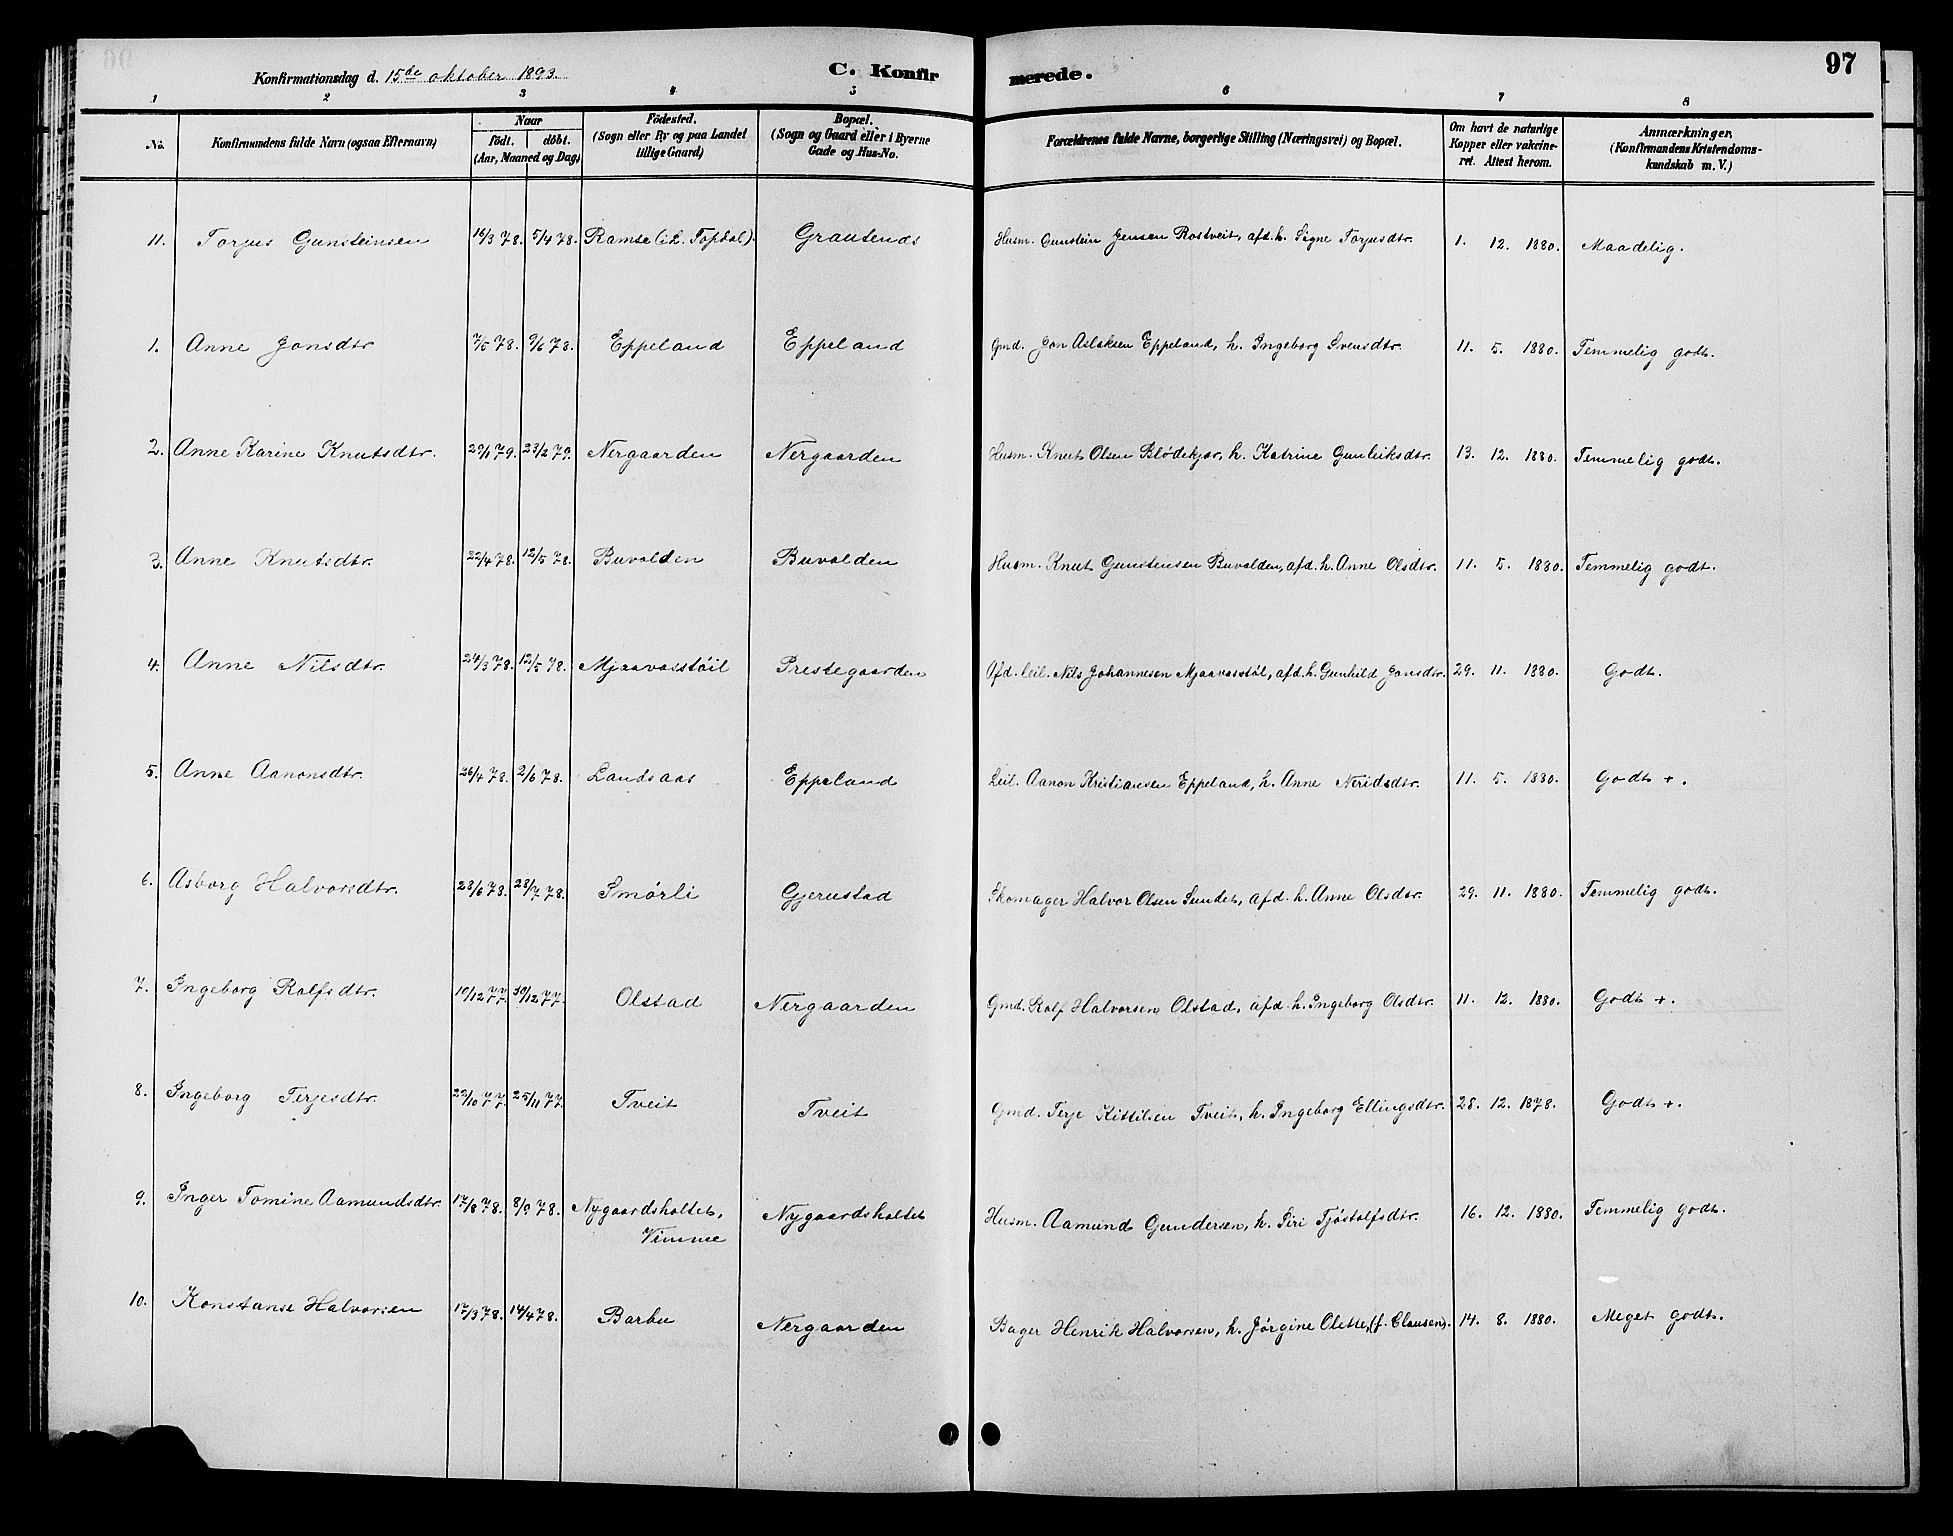 Konfirmationsdag d. 15de oktober 1893. C. Konfirmerede. 97
1 2 3 4 5 6 7 8
No. Konfirmandens fulde Navn (ogsaa Efternavn) Naar født. døbt. (Aar, Maaned og Dag) Födested. (Sogn eller By og paa Landet tillige Gaard) Bopæl. (Sogn og Gaard eller i Byerne Gade og Hus-No. Forældrenes fulde Navne, borgerlige Stilling (Næringsvei) og Bopæl. Om havt de naturlige Kopper eller vakcineret. Attest herom. Anmærkninger. (Konfirmandens Kristendomskundskab m. V.)
11. Torjus Gunsteinsen 16/3 78. 5/4 78. Ramse (i ö. Topdal). Grautends Husm. Gunstein Jensen Rostveit, afd. h. Signe Torjusdtr. 1. 12. 1880. Maadelig.
1. Anne Jonsdtr 7/5 78. 9/6 78. Eppeland Eppeland Gmd. Jon Aslaksen Eppeland, h. Ingeborg Svensdtr. 11. 5. 1880. Temmelig godt.
2. Anne Karine Knutsdtr. 29/1 79. 23/2 79. Nergaarden Nergaarden Husm. Knut Olsen Blödekjær, h. Katrine Gunleiksdtr. 13. 12. 1880. Temmelig godt.
3. Anne Knutsdtr. 22/4 78. 12/5 78. Buvolden Buvolden Husm. Knut Gunstensen Buvolden, afd. h. Anne Olsdtr. 11. 5. 1880. Temmelig godt.
4. Anne Nilsdtr. 24/3 78. 12/5 78. Mjaavasstöil Prestegaarden Afd. leil. Nils Johannesen Mjaavasstöl, afd. h. Gunhild Jonsdtr. 29. 11. 1880. Godt.
5. Anne Aanonsdtr. 26/4 78. 2/6 78. Landsaas Eppeland Leil. Aanon Kristiansen Eppeland, h. Anne Neridsdtr. 11. 5. 1880. Godt +.
6. Asborg Halvorsdtr. 23/6 78. 28/7 78. Smörli Gjerustad Skomager Halvor Olsen Sundet, afd. h. Anne Olsdtr. 29. 11. 1880. Temmelig godt.
7. Ingeborg Rolfsdtr. 10/12 77. 30/12 77. Olstad Nergaarden Gmd. Rolf Halvorsen Olstad, afd h. Ingeborg Olsdtr. 11. 12. 1880. Godt +.
8. Ingeborg Terjesdtr. 22/10 77. 25/11 77. Tveit Tveit Gmd. Terje Kittilsen Tveit, h. Ingeborg Ellingsdtr. 28. 12. 1878. Godt +.
9. Inger Tomine Aamundsdtr. 17/8 78. 8/9 78. Nygaardsholtet, Vimme Nygaardsholtet Husm. Aamund Gundersen, h. Siri Tjöstolfsdtr. 16. 12. 1880. Temmelig godt.
10. Konstanse Halvorsen 17/3 78. 14/4 78. Barbu Nergaarden Bager Henrik Halvorsen, h. Jörgine Olette, (f. Clausen). 14. 8. 1880. Meget godt.